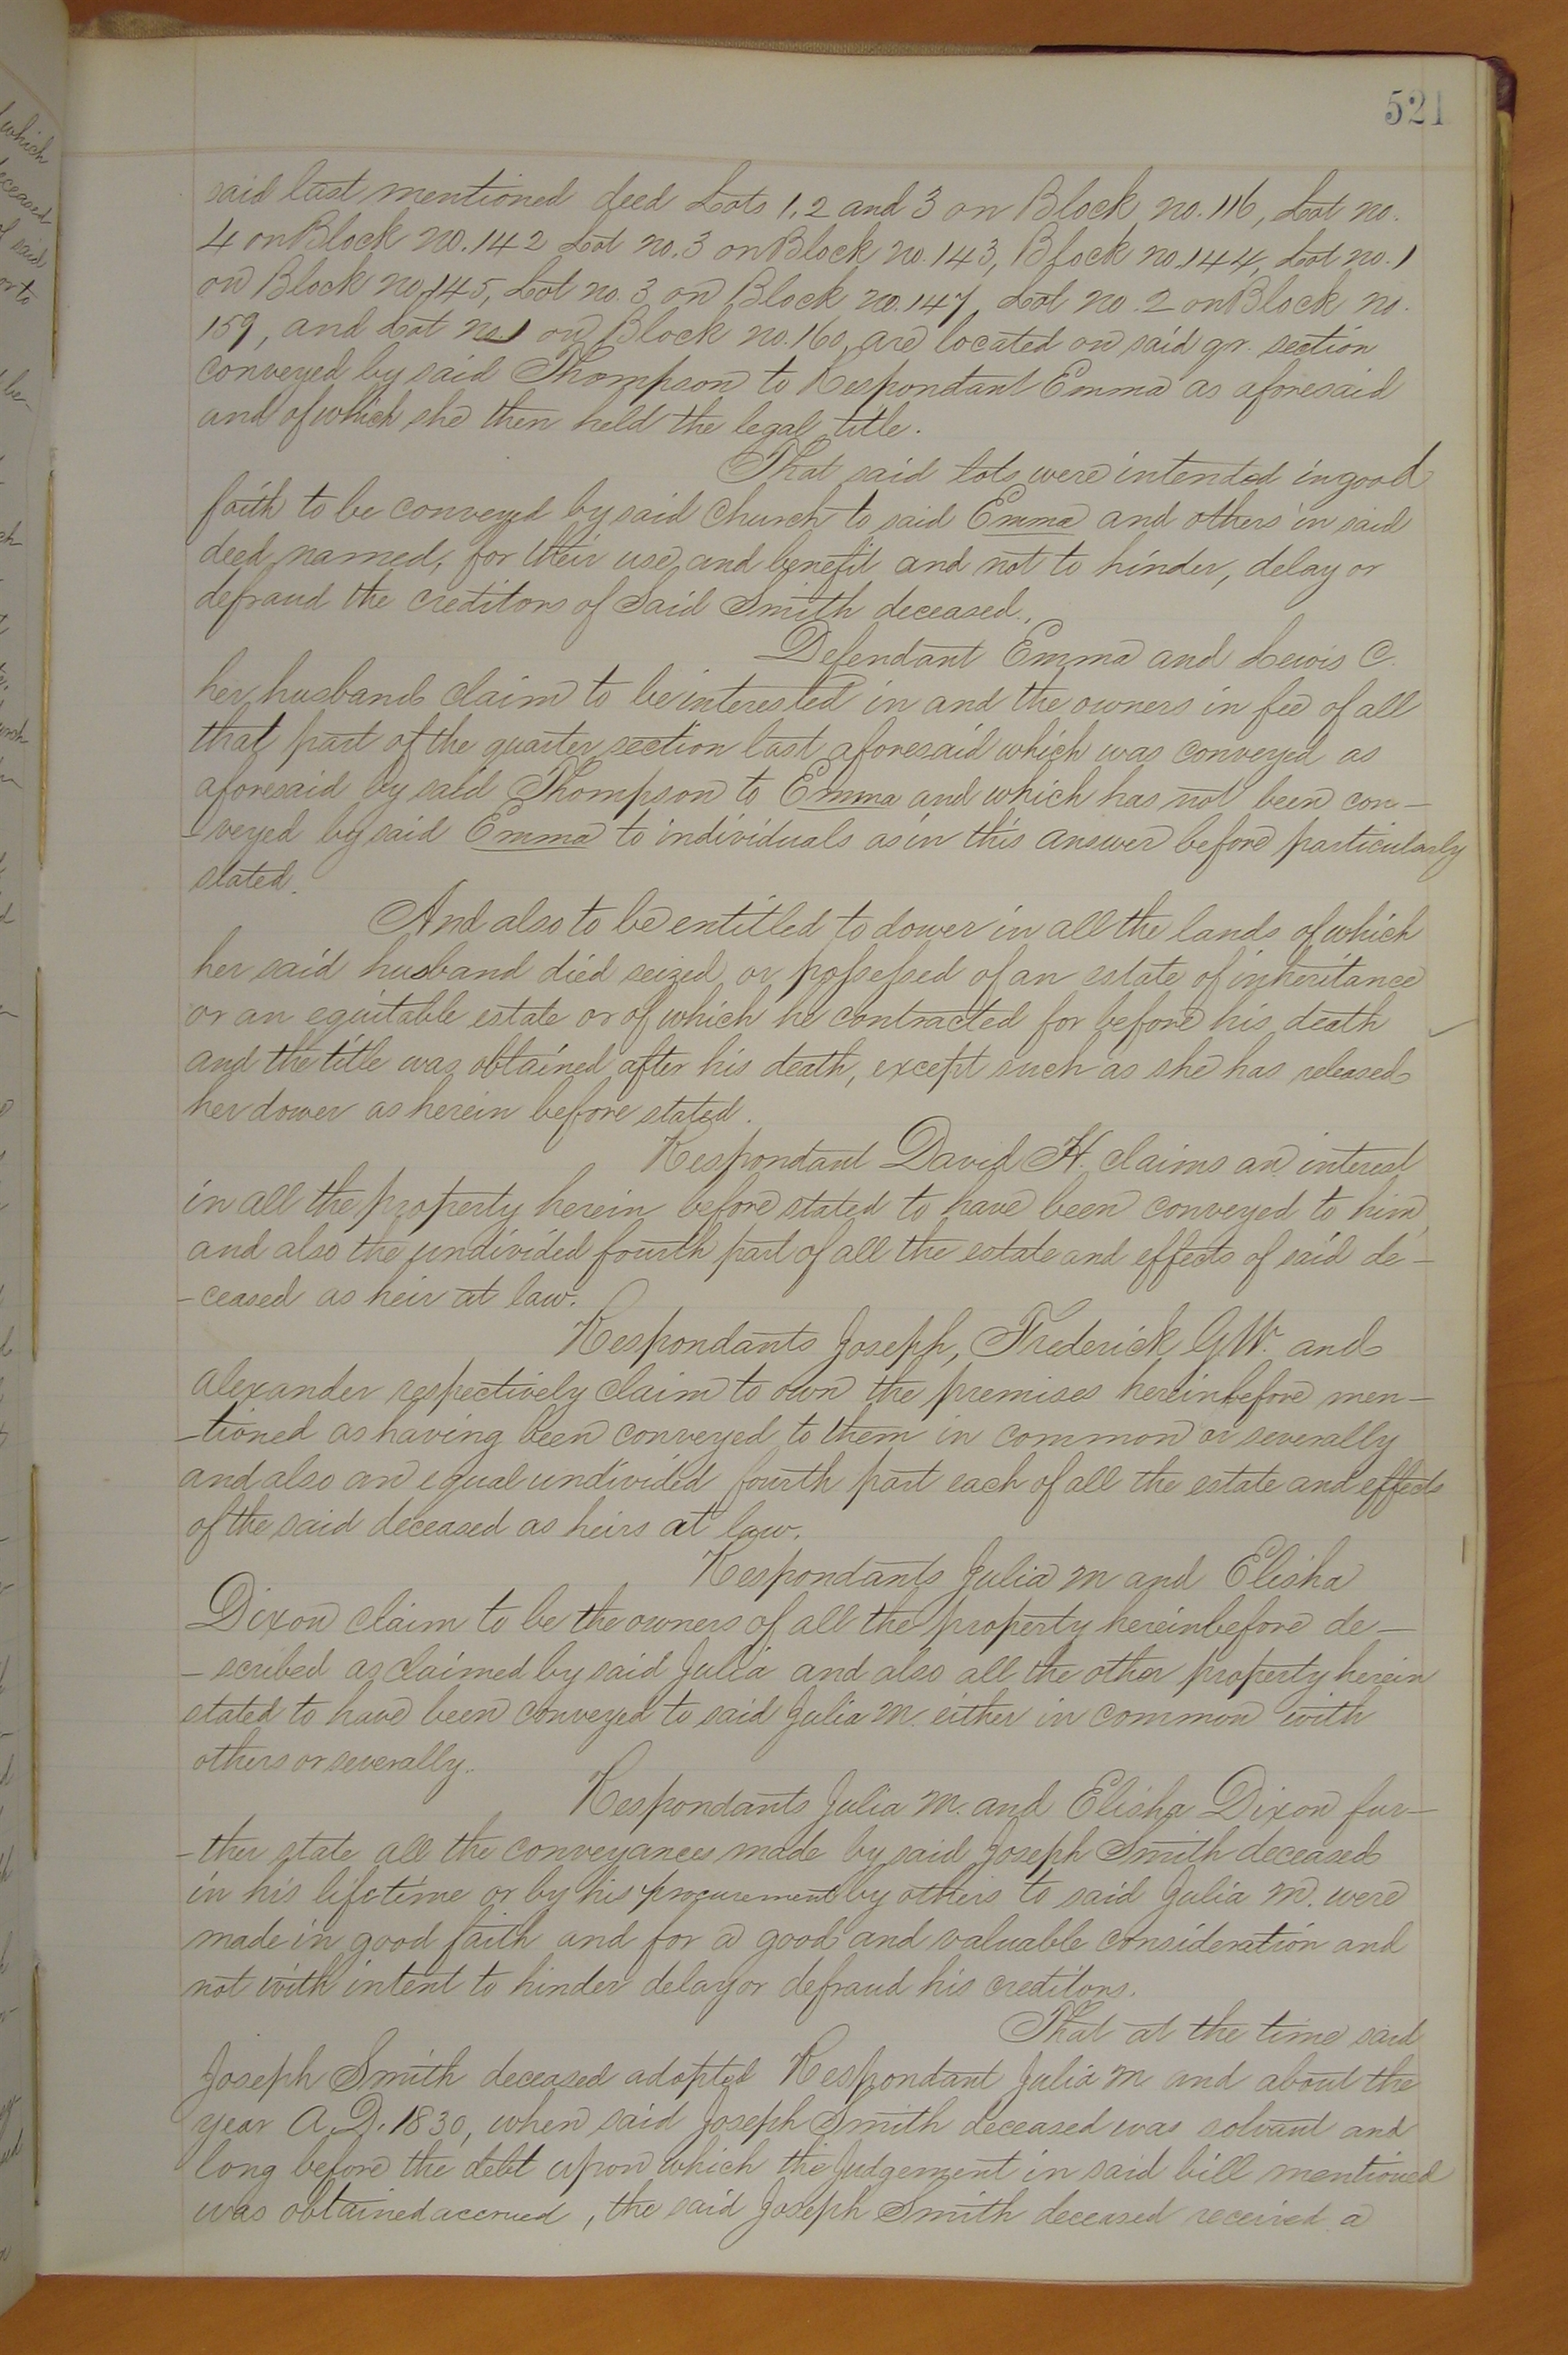 521
said last mentioned deed Lots 1, 2 and 3 on Block no. 116, Lot no.
4 on Block no. 142 Lot no. 3 on Block no. 143, Block no. 144, Lot no. 1
on Block no. 145, Lot no. 3 on Block no. 147, Lot no. 2 on Block no.
159, and Lot no. 1 on Block no. 160, are located on said qr. section
conveyed by said Thompson to Respondant Emma as aforesaid
and of which she then held the legal title.
That said lots were intended in good
faith to be conveyed by said church to said Emma and others in said
deed named, for their use and benefit and not to hinder, delay or
defraud the creditors of Said Smith deceased.
Defendant Emma and Lewis C.
her husband claim to be interested in and the owners in fee of all
that part of the quarter section last aforesaid which was conveyed as
aforesaid by said Thompson to Emma and which has not been con-
-veyed by said Emma to individuals as in this answer before particularly
stated.
And also to be entitled to dower in all the lands of which
her said husband died seized or possessed of an estate of inheritance
or an equitable estate or of which he contracted for before his death
and the title was obtained after his death, except such as she has released
her dower as herein before stated.
Respondant David H. claims an interest
in all the property herein before stated to have been conveyed to him
and also the undivided fourth part of all the estate and effects of said de-
-ceased as heir at law.
Respondants Joseph, Frederick G.W. and
Alexander respectively claim to own the premises hereinbefore men-
-tioned as having been conveyed to them in common or severally
and also an equal undivided fourth part each of all the estate and effects
of the said deceased as heirs at law.
Respondants Julia M and Elisha
Dixon claim to be the owners of all the property hereinbefore de-
-scribed as claimed by said Julia and also all the other property herein
stated to have been conveyed to said Julia M. either in common with
others or severally.
Respondants Julia M. and Elisha Dixon fur-
-ther state all the conveyances made by said Joseph Smith deceased
in his lifetime or by his procurement by others to said Julia M. were
made in good faith and for a good and valuable consideration and
not with intent to hinder delay or defraud his creditors.
That at the time said
Joseph Smith deceased adopted Respondant Julia M. and about the
year A.D. 1830, when said Joseph Smith deceased was solvant and
long before the debt upon which the Judgement in said bill mentioned
was obtained accrued, the said Joseph Smith deceased received a